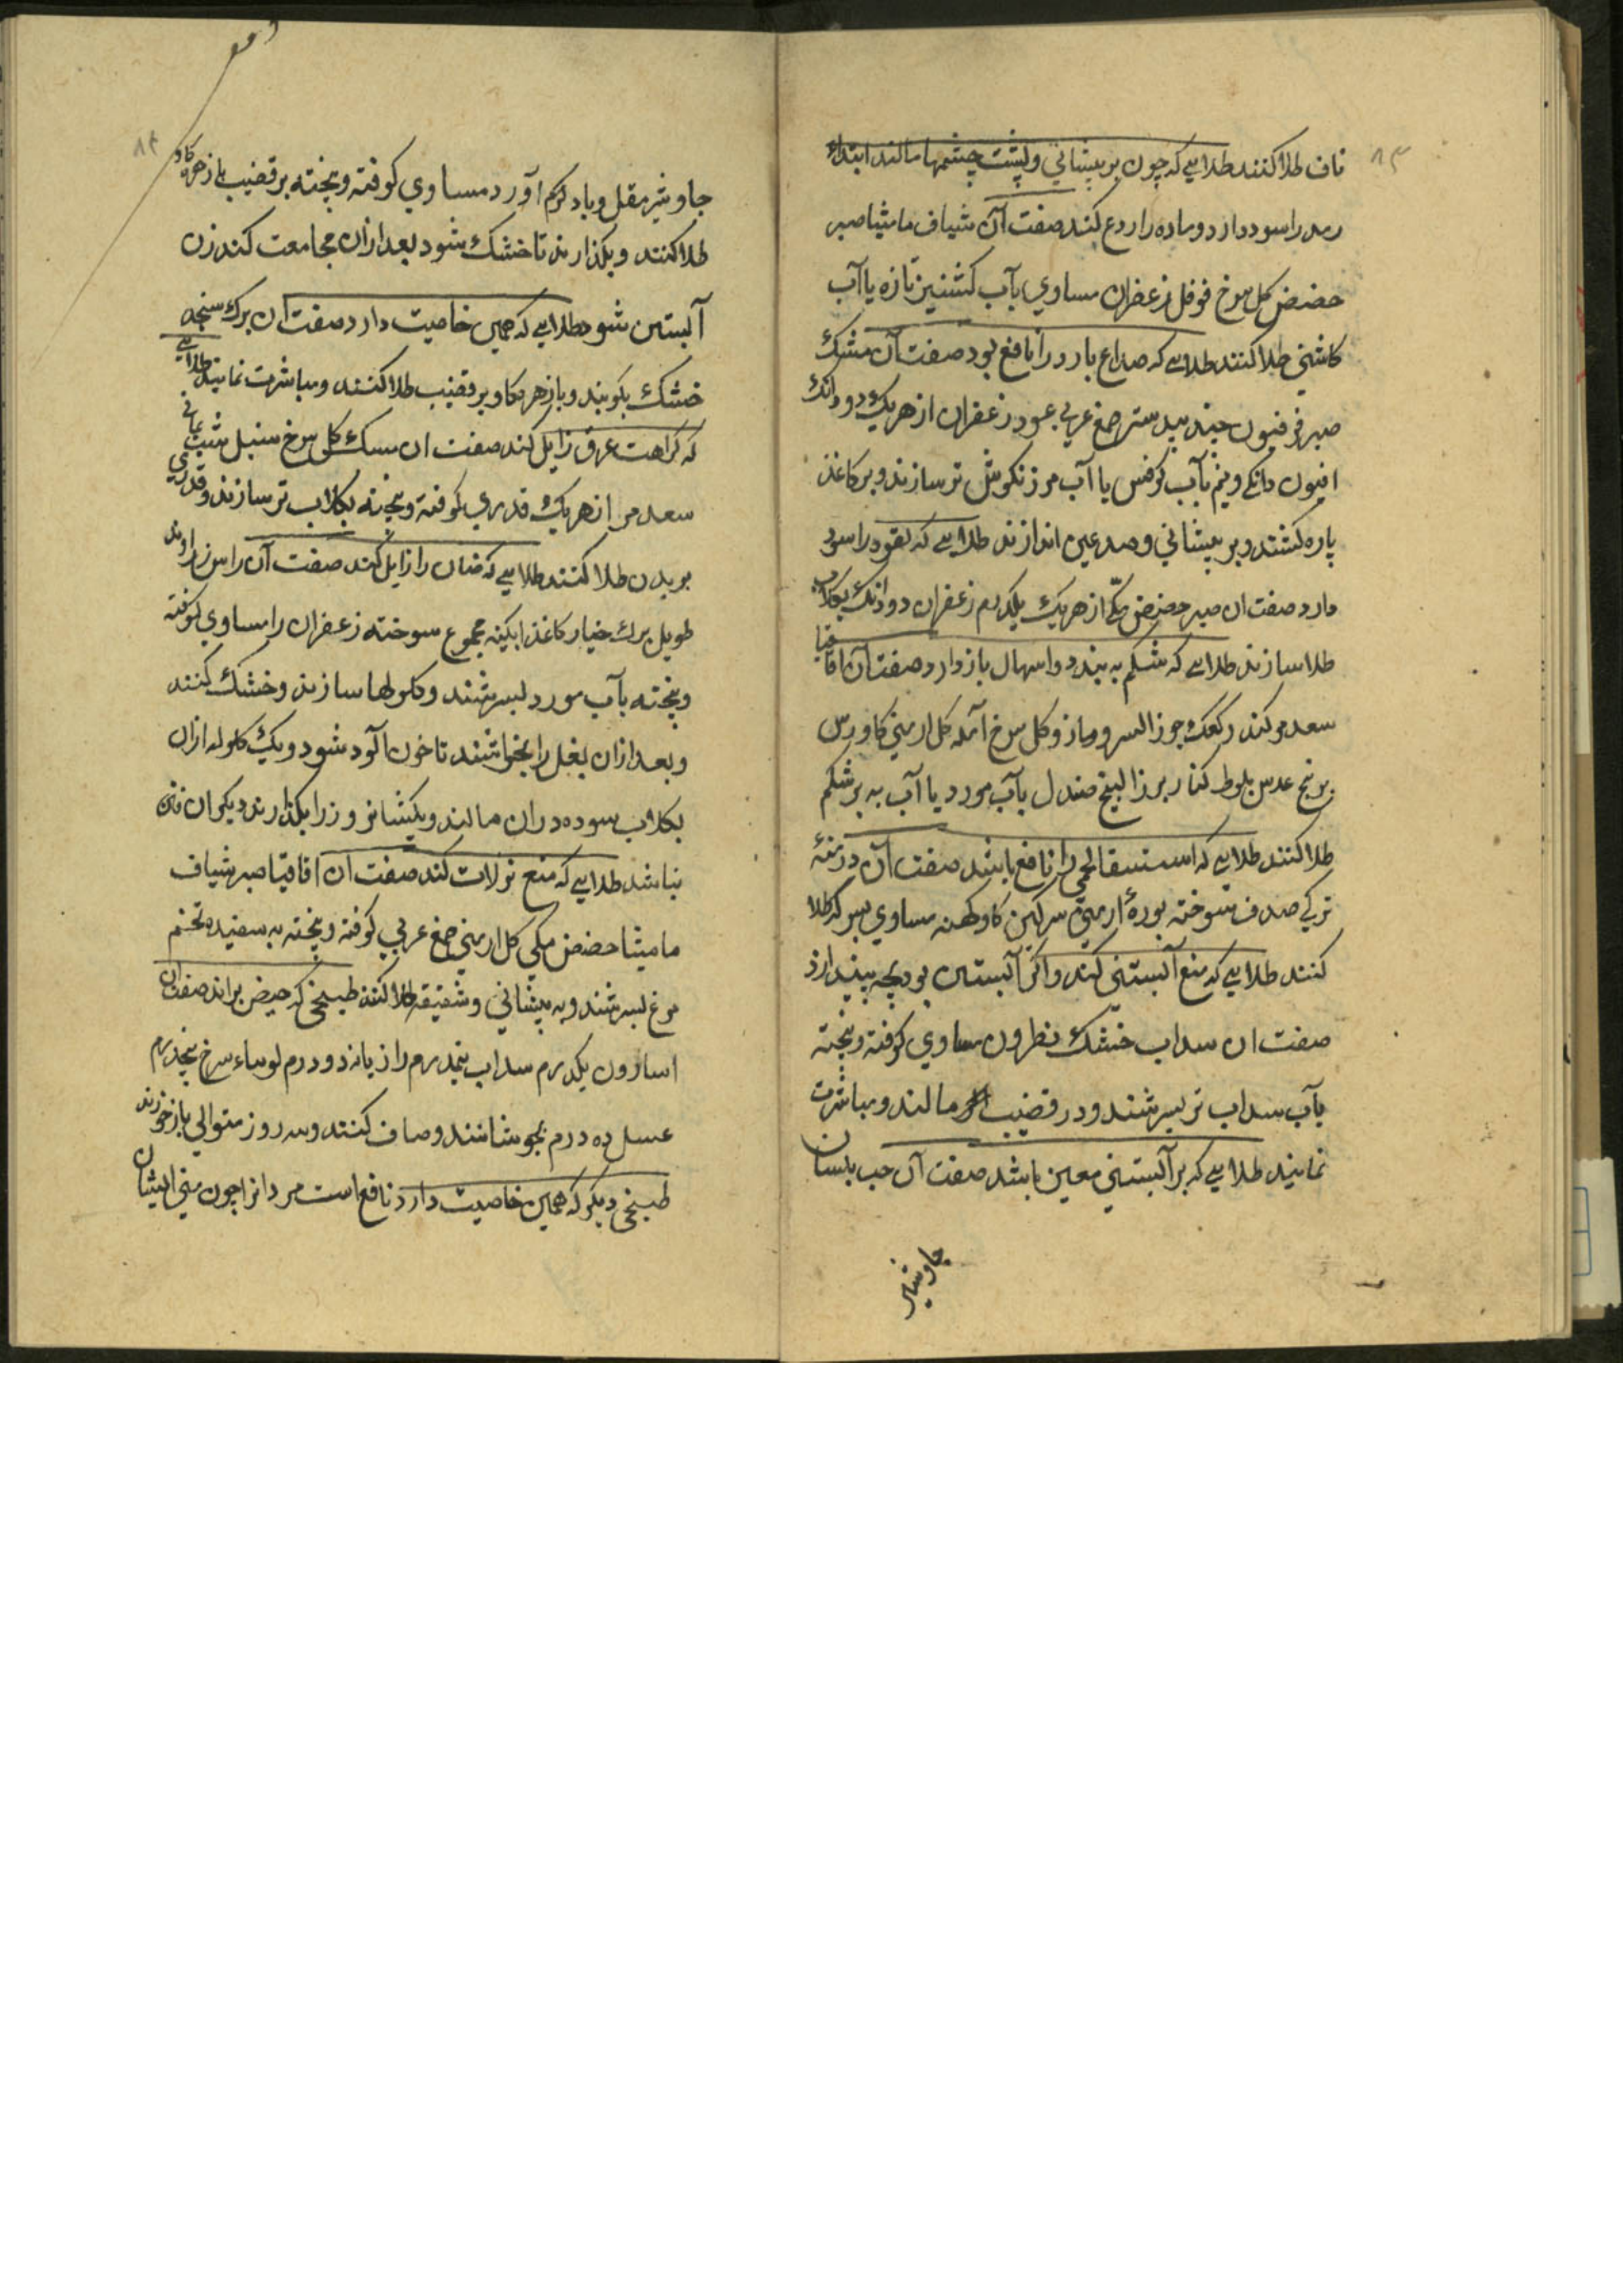 ۸۳
ناف طلا کنند طلایی که چون بر پیشانی و پشت چشمها مالند ابتداء
رمد را سود دارد و ماده را ردع کند صفت آن شیاف مامیثا صبر
حضض کل سرخ فوفل زعفران مساوی بآب کشنیز تازه یا آب
کاشنی طلا کنند طلایی که صداع بارد را نافع بود صفت آن مشک
صبر فرفیون جند بیدستر صمغ عربی عود زعفران از هر یک دو دانک
افیون دانکی و نیم بآب کرفس یا آب مرزنکوش تر سازند و بر کاغذ
پاره کشند و بر پیشانی و صدغین اندازند طلایی که لقوه را سود
دارد صفت ان صبر حضض مکّی از هر یک یکدرم زعفران دو دانک بکلاب
طلا سازند طلایی که شکم به بندد و اسهال باز دارد صفت آن اقاقیا
سعد مر کندر کعک جوز السرو مازو کل سرخ آمله کل ارمنی کاورس
برنج عدس بلوط کنار بزر البنج صندل بآب مورد یا آب به بر شکم
طلا کنند طلایی که استسقا لحمی را نافع باشد صفت آن درمنهٔ
ترکی صدف سوخته بورهٔ ارمنی سرکین کاو کهنه مساوی بسرکه طلا
کنند طلایی که منع آبستنی کند و اکر آبستن بود بچه بیندازد
صفت ان سداب خشک نطرون مساوی کوفته و بیخته
بآب سداب تر بسرشند و در قضیب مالند و مباشرت
نمایند طلایی که بر آبستنی معین باشد صفت آن حب بلسان
جاوشیر
۸۴
جاوشیر مقل و باد آورد مساوی کوفته و بیخته بر قضیب با زهره کاو
طلا کنند و بکذارند تا خشک شود بعد از ان مجامعت کند زن
آبستن شود طلایی که همین خاصیت دارد صفت ان برک سنجد
خشک بکوبند و با زهره کاو بر قضیب طلا کنند و مباشرت نمایند طلایی
که کراهت عرق زایل کند صفت ان سک کل سرخ سنبل شب یمانی
سعد مر از هر یک قدری کوفته و بیخته بکلاب تر سازند و قدری
بر بدن طلا کنند طلایی که ضنان را زایل کند صفت آن راسن زراوند
طویل برک خیار کاغذ ابکینه مجموع سوخته زعفران را مساوی کوفته
و بیخته بآب مورد بسرشند و کلولها سازند و خشک کنند
و بعد از ان بغل را بخراشند تا خون آلود شود و یک کلوله از ان
بکلاب سوده در ان مالند و یکشبانروز را بکذارند دیکر ان نتن
نباشد طلایی که منع نزلات کند صفت ان اقاقیا صبر شیاف
مامیثا حضض مکی کل ارمنی صمغ عربی کوفته و بیخته به سفیده تخم
مرغ بسرشند و به پیشانی و شقیقه طلا کنند طبیخی که حیض براند صفت ان
اسارون یکدرم سداب نیمدرم رازیانه دو درم لوبیاء سرخ پنجدرم
عسل ده درم بجوشانند و صاف کنند و سه روز متوالی باز خورند
طبیخی دیکر که همین خاصیت دارد نافع است مردانرا چون منی ایشان